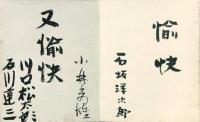 愉快
石坂洋次郎
又愉快
小林秀雄
川口松太郎
石川達三